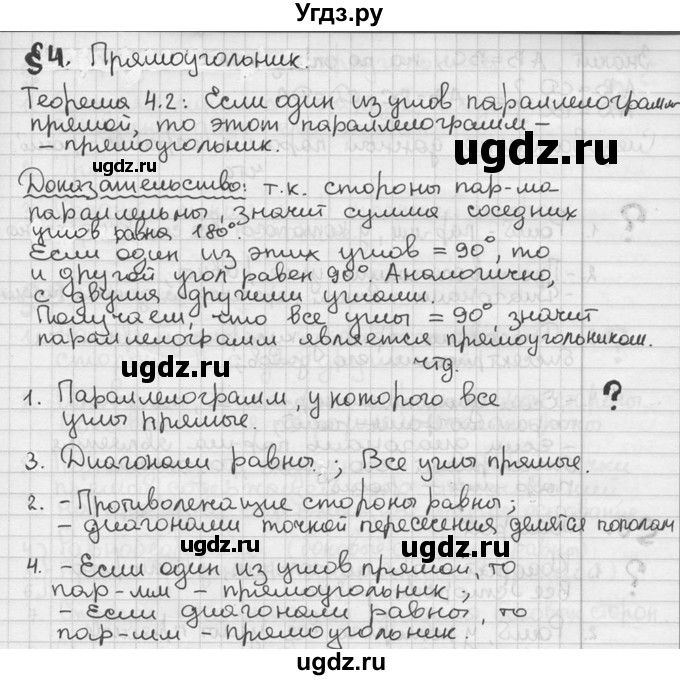 Угдз.ру
§4. Прямоугольник.
Теорема 4.2: Если один из углов параллелограмм
прямой, то этот параллелограмм –
– прямоугольник.
ugdz.ru
ugdz.ru
Доказательство: т.к. стороны пар-ма
параллельны, значит сумма соседних
углов равна 180°.
Если один из этих углов = 90°, то
и другой угол равен 90°. Аналогично,
с двумя другими углами.
ugdz.ru
Получаем, что все углы = 90°, значит
параллелограмм является прямоугольником.
ugdz.ru
чтд.
1. Параллелограмм, у которого все ?
углы прямые.
ugdz.ru
3. Диагонали равны.; Все углы прямые.
2. – Противолежащие стороны равны;
– диагонами точкой пересесения делятся пополам
ugdz.ru
ugdz.ru
4. – Если один из углов прямой, то
пар-мм – прямоугольник;
– Если диагонали равны, то
пар-мм – прямоугольник.
ugdz.ru
ugdz.ru